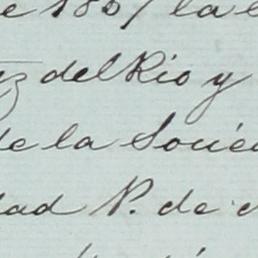 e 1867 la
z del Rio y
de la Socie
dad P. de